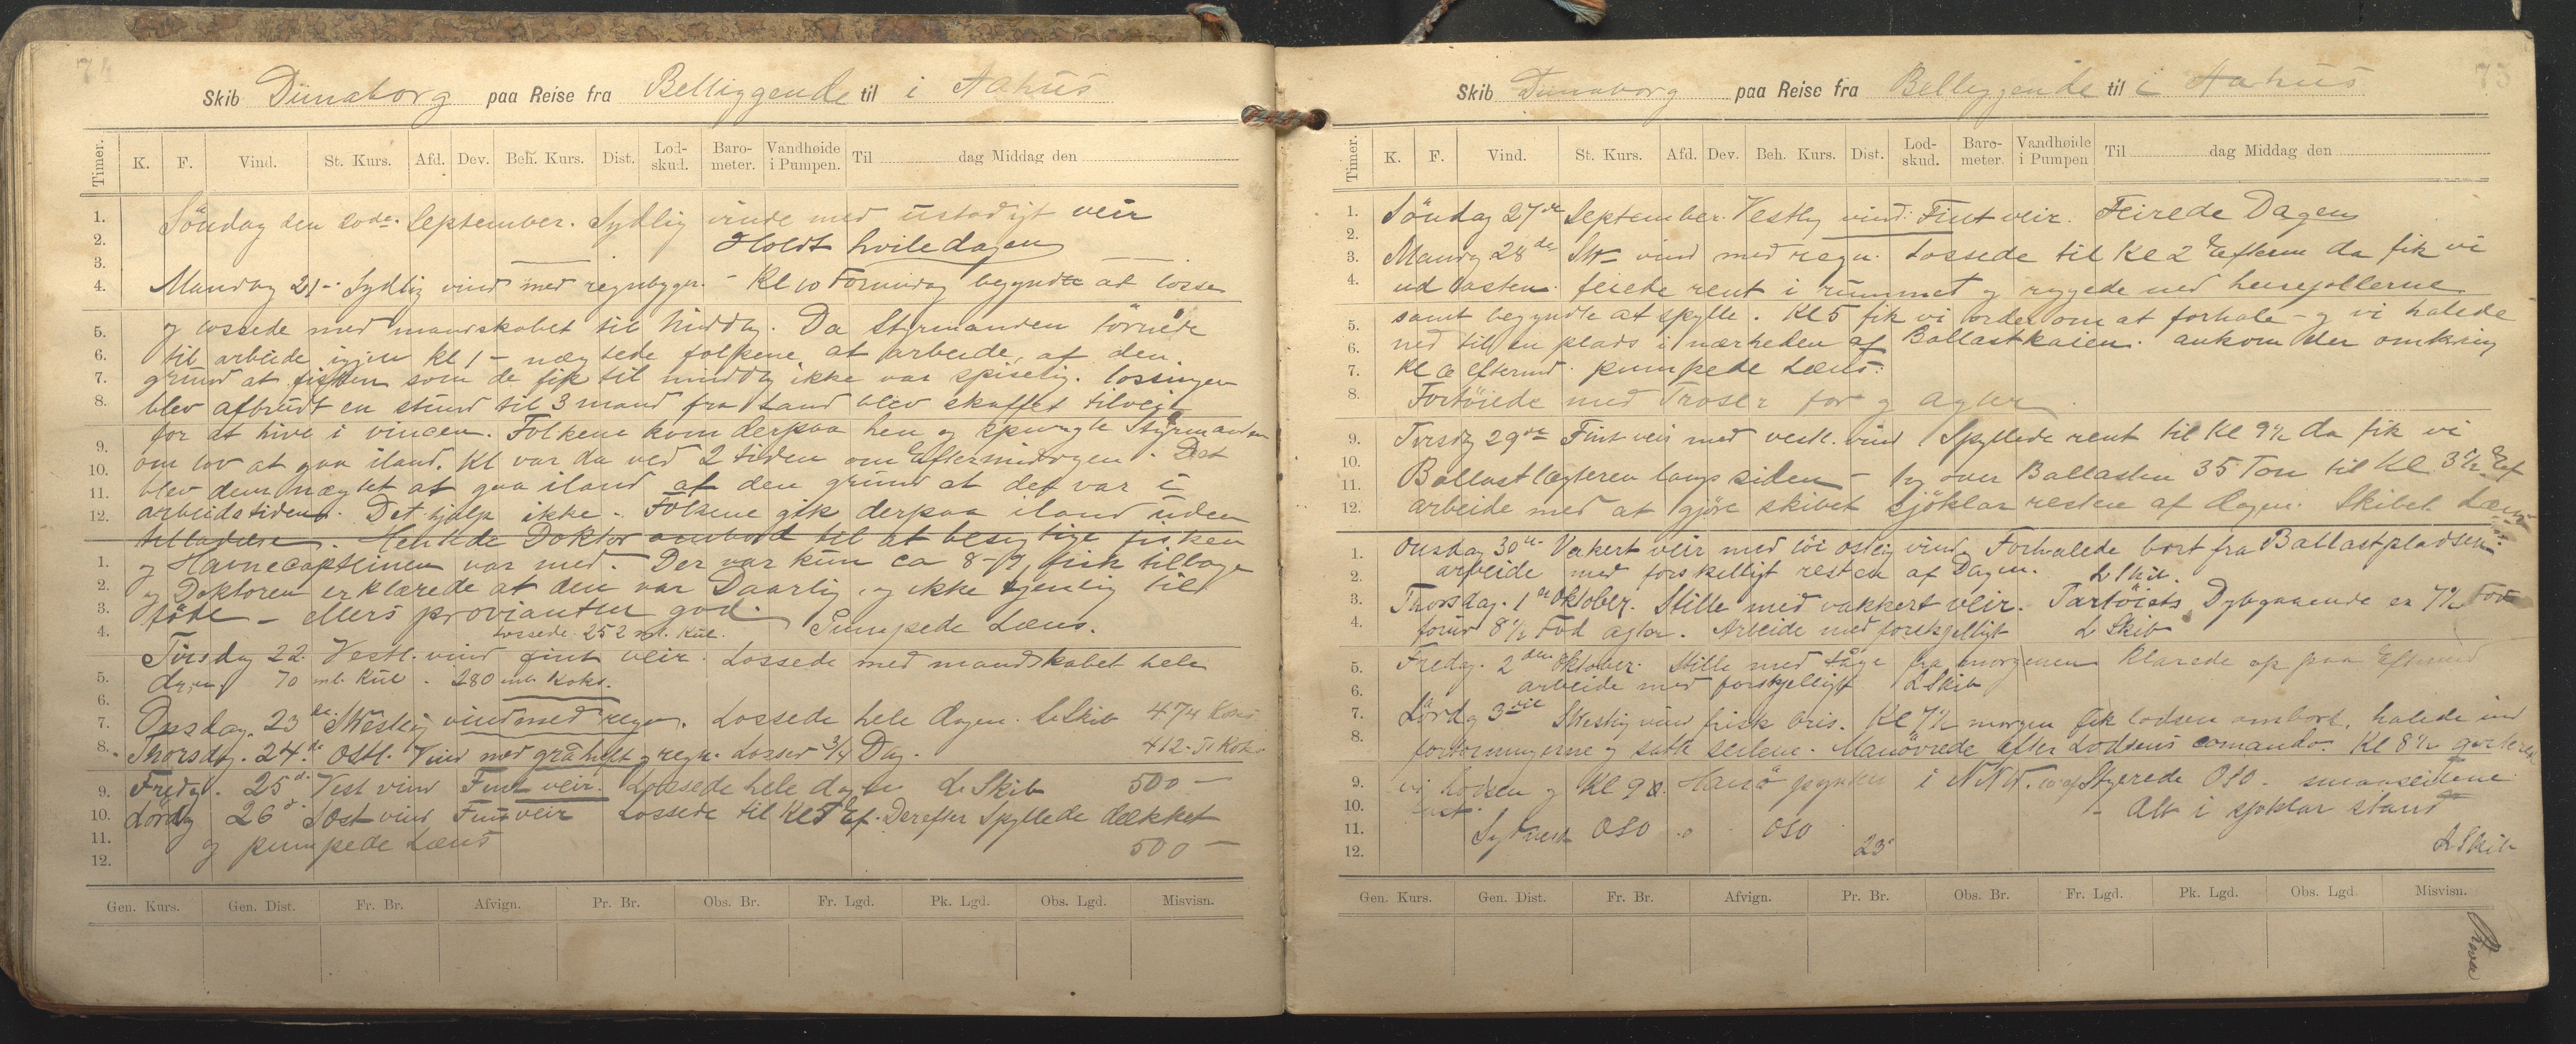 74
Skib Dünaborg paa Reise fra Beliggende til i Aahus
Timer. K. F. Vind. St. Kurs. Afd. Dev. Beh. Kurs. Dist. Lod-skud. Baro-meter. Vandhøide i Pumpen. Til dag Middag den
1. 2. 3. 4. 5. 6. 7. 8. 9. 10. 11. 12.
1. 2. 3. 4. 5. 6. 7. 8. 9. 10. 11. 12.
Söndag den 20de September. Sydlig vinde med ustadigt veir
Holdt hviledagen
Mandag 21 - Sydlig vind med regnbyger. - Kl 10 Formidag begyndte at losse
og lossede med mandskabet til Middag. Da Styrmanden törnede
til arbeide igjen kl 1 - nægtede folkene at arbeide, af den
grund at fisken som de fik til middag ikke var spiselig. lossingen
blev afbrudt en stund til 3 mand fra Land blev skaffet tilveie
for at hive i vincen. Folkene kom derpaa hen og spurgte Styrmanden
om lov at gaa iland. Kl var da ved 2 tiden om Eftermidagen. Det
blev dem nægtet at gaa iland af den grund at det var i
arbeidstiden. Det hjalp ikke - Folkene gik derpaa iland uden
tilladelse. Hentede Doktor ombord til at besigtige fisken
og Havnecapteinen var med. Der var kun ca 8-9 fisk tilbage
og Doktoren erklærede at den var Daarlig og ikke tjenlig til
föde - ellers provianten god. Pumpede Læns.
Lossede 252 ml. Kul.
Tirsdag 22. Vestl. vind fint veir. Lossede med mandskabet hele
dagen 70 ml. Kul. 280 ml. Koks.
Onsdag 23de SWestlig vind med regn. Lossede hele dagen. L Skib 474 Koks
Thorsdag. 24de Ostl. Vind med regn. Losset 3/4 Dag. 412 Koks
Fredag. 25d. Vest vind Fint veir. Lossede hele dagen L Skib 500 —
Lördag 26d Sost vind Fint veir Lossede til Kl 5 Ef. Derefter Spyllede dækket
og pumpede Læns 500 —
Gen. Kurs. Gen. Dist. Fr. Br. Afvign. Pr. Br. Obs. Br. Fr. Lgd. Pk. Lgd. Obs. Lgd. Misvisn.
75
Skib Dünaborg paa Reise fra Beliggende til i Aahus
Timer. K. F. Vind. St. Kurs. Afd. Dev. Beh. Kurs. Dist. Lod-skud. Baro-meter. Vandhøide i Pumpen Til dag Middag den
1. 2. 3. 4. 5. 6. 7. 8. 9. 10. 11. 12.
1. 2. 3. 4. 5. 6. 7. 8. 9. 10. 11. 12.
Söndag 27de September. Vestlig vind. Fint veir. Feirede Dagen
Mandag 28de SW vind med regn. Lossede til Kl 2 Efterm da fik vi
ud lasten. feiede rent i rummet og ryggede ned heisejollerne
samt begyndte at spylle. Kl 5 fik vi order om at forhale - og vi halede
ned til en plads i nærheden af Ballastkaien. ankom der omkring
Kl 6 Eftermd. pumpede Læns.
Fortöiede med Troser for og agter
Tirsdag 29de Fint veir med vestl. vind Spyllede rent til Kl 9½ da fik vi
Ballastlægteren langs siden - tog over Ballasten 35 Ton til Kl 3½ Ef
arbeide med at gjöre skibet sjöklar resten af dagen. Skibet Læns
Onsdag 30te Vakkert veir med löi ostlig vind. Forhalede bort fra Ballastpladsen.
arbeide med forskelligt resten af Dagen. L Skib.
Thorsdag. 1te Oktober. Stille med vakkert veir. Fartöiets Dybgaaende er 7½ Fod
forud 8½ Fod agter. Arbeide med forskjelligt L Skib
Fredag. 2den Oktober. Stille med tåge fra morgenen klarede op paa Eftermid
arbeide med forskjelligt L Skib
Lördag 3die SWestlig vind frisk bris. Kl 7½ morgen fik lodsen ombort. halede ind
fortoiningerne og satte seilene. Manövrede efter Lodsens comando. Kl 8½
vi Lodsen og Kl 9 Hanö i NNW. Styrede OSO. smaaseilene
fast. - Alt i sjöklar stand
Sydvest OSO OSO 23
L Skib
Gen. Kurs. Gen. Dist. Fr. Br. Afvign. Pr. Br. Obs. Br. Fr. Lgd. Pk. Lgd. Obs. Lgd. Misvisn.